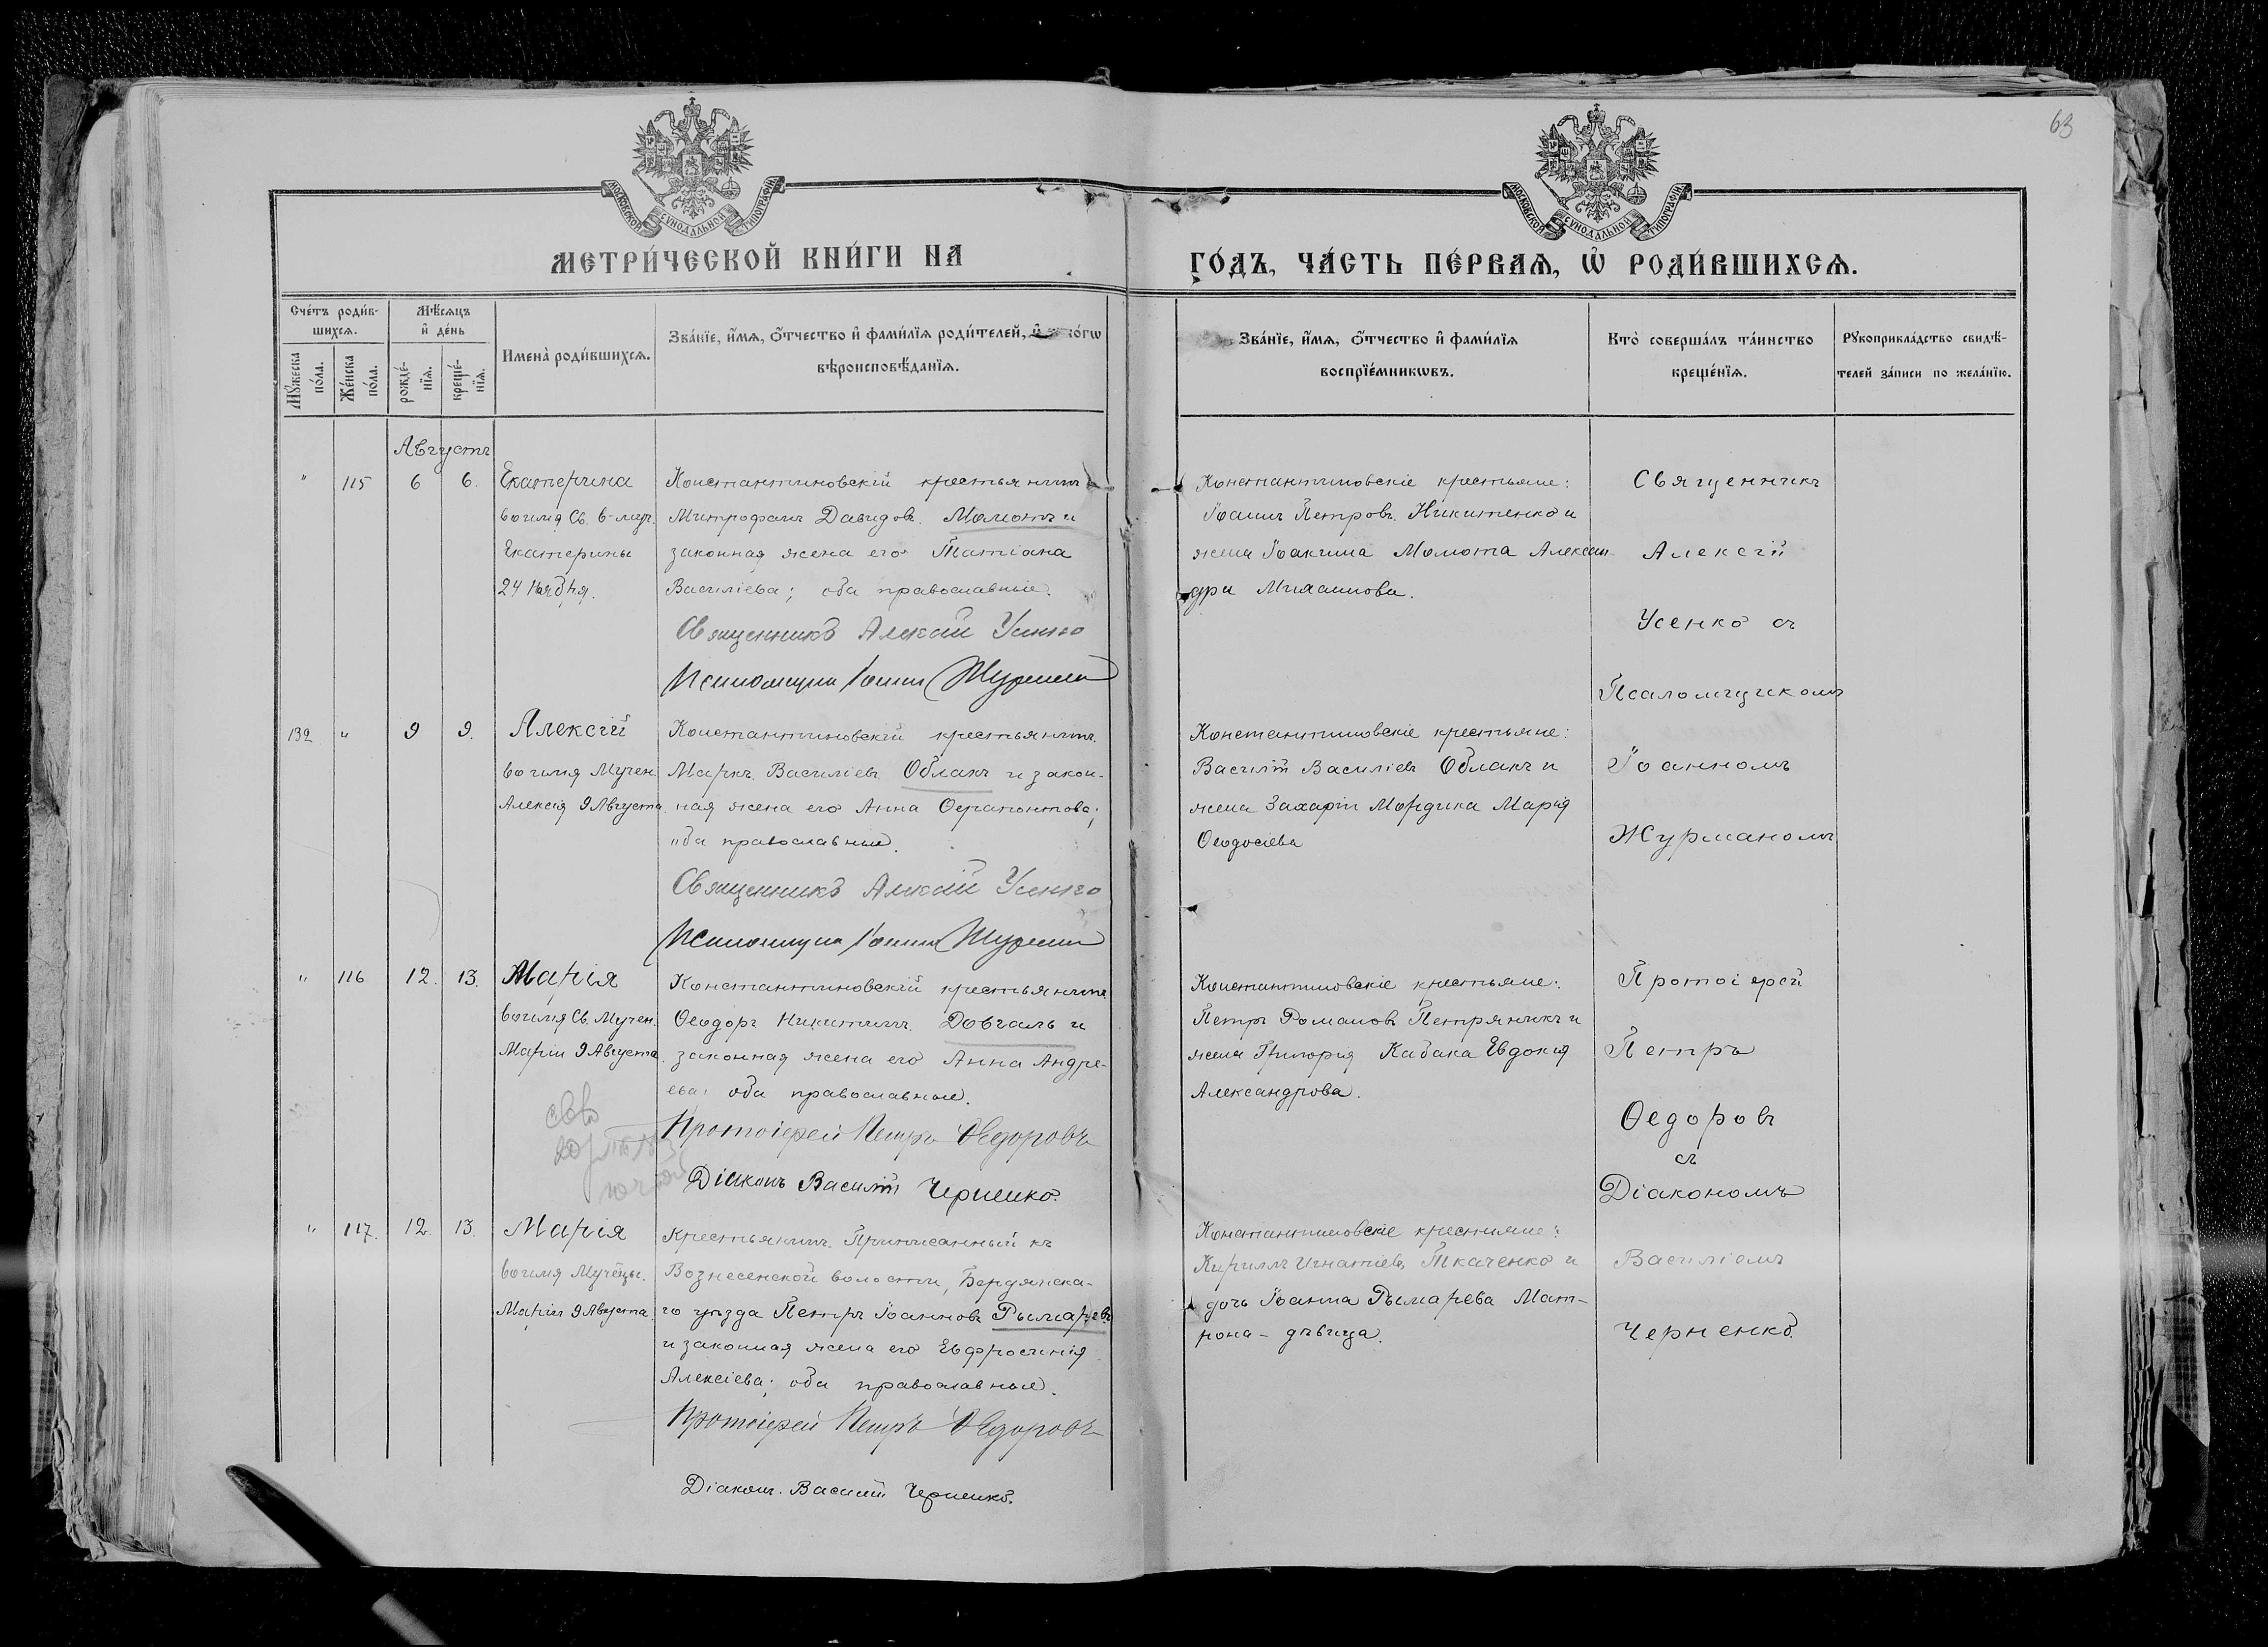 63
МОСКОВСКОЙ СУНОДАЛЬНОЙ ТИПОГРАФІИ
МОСКОВСКОЙ СУНОДАЛЬНОЙ ТИПОГРАФІИ
МЕТРИ́ЧЕСКОЙ КНИ́ГИ НА
ГО́ДЪ, ЧА́СТЬ ПЕ́РВАѦ, Ѡ РОДИ́ВШИХСѦ.
Сче́тъ роди́в-
шихсѧ.
Мꙋ́жеска
по́ла.
Же́нска
по́ла.
Мѣ́сѧцъ
и҆ де́нь
рожде́-
нїѧ.
креще́-
нїѧ.
Имена̀ роди́вшихсѧ.
Зва́нїе, и҆́мѧ, ѻ҆́тчество и҆ фами́лїѧ роди́телей, и҆
вѣроисповѣ́данїѧ.
Зва́нїе, и҆́мѧ, ѻ҆́тчество и҆ фами́лїѧ
воспрїе́мникѡвъ.
Кто̀ соверша́лъ та́инство
креще́нїѧ.
Рꙋкоприкла́дство свидѣ́-
телей за́писи по жела́нїю.
Августъ
" 115 6 6.
Екатерина
во имя Св. в-муч.
Екатерины
24 Ноября.
Константиновскій крестьянинъ
Митрофанъ Давидовъ Мамотъ и
законная жена его Татіана
Василіева; оба православные.
Священникъ Алексій Усенко
Псаломщикъ Іоаннъ Журманъ
Константиновскіе крестьяне:
Іоаннъ Петровъ Никитенко и
жена Іоакима Момота Алексан-
дра Михаилова.
Священникъ
Алексій
Усенко съ
Псаломщикомъ
Іоанномъ
Журманомъ
132 " 9 9.
Алексій
во имя Мучен.
Алексія 9 Августа.
Константиновскій крестьянинъ
Маркъ Василіевъ Облакъ и закон-
ная жена его Анна Ѳерапонтова;
оба православные.
Священникъ Алексій Усенко
Псаломщикъ Іоаннъ Журманъ
Константиновскіе крестьяне:
Василій Василіевъ Облакъ и
жена Захарія Мордика Марія
Ѳеодосіева
" 116 12. 13.
Марія
во имя Св. Мучен.
Маріи 9 Августа.
Константиновскій крестьянинъ
Ѳеодоръ Никитинъ Довгаль и
законная жена его Анна Андре-
ева; оба православные.
Протоіерей Петръ Ѳедоровъ
Діаконъ Василій Черненко.
Константиновскіе крестьяне:
Петръ Романовъ Петряникъ и
жена Григорія Кабака Евдокія
Александрова.
Протоіерей
Петръ
Ѳедоровъ
съ
Діакономъ
Василіемъ
Черненко.
" 117. 12. 13.
Марія
во имя Мучен̃цы.
Маріи 9 Августа.
Крестьянинъ Приписанный къ
Вознесенской волости, Бердянска-
го уѣзда Петръ Іоанновъ Рымаревъ
и законная жена его Евфросинія
Алексіева; оба православные.
Протоіерей Петръ Ѳедоровъ
Діаконъ Василій Черненко.
Константиновскіе крестьяне:
Кириллъ Игнатіевъ Ткаченко и
дочь Іоанна Рымарева Мат-
рона - дѣвица.